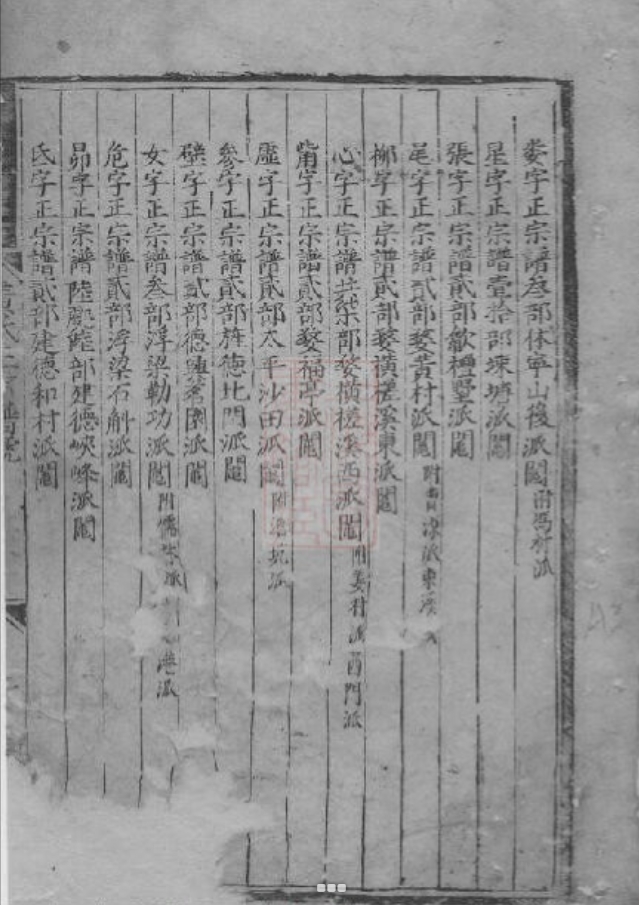 婁字正宗譜叁部休寧山後派閣附馮村派
星字正宗譜壹拾部堨塘派閣
張字正宗譜貳部歙禮墅派閣
尾字正宗譜貳部婺黃村派閣附 派東溪
柳字正宗譜貳部婺橫槎溪東派閣
心字正宗譜柒部婺橫槎溪西派閣附姜村派酉門派
觜字正宗譜貳部婺福亭派閣
虛字正宗譜貳部太平沙田派閣附 坑派
參字正宗譜貳部旌德北門派閣
壁字正宗譜貳部德興舊園派閣
女字正宗譜叁部浮梁勒功派閣附儒 派 港派
危字正宗譜貳部浮梁石斛派閣
昴字正宗譜陸 部建德峽峰派閣
氐字正宗譜貳部建德和村派閣